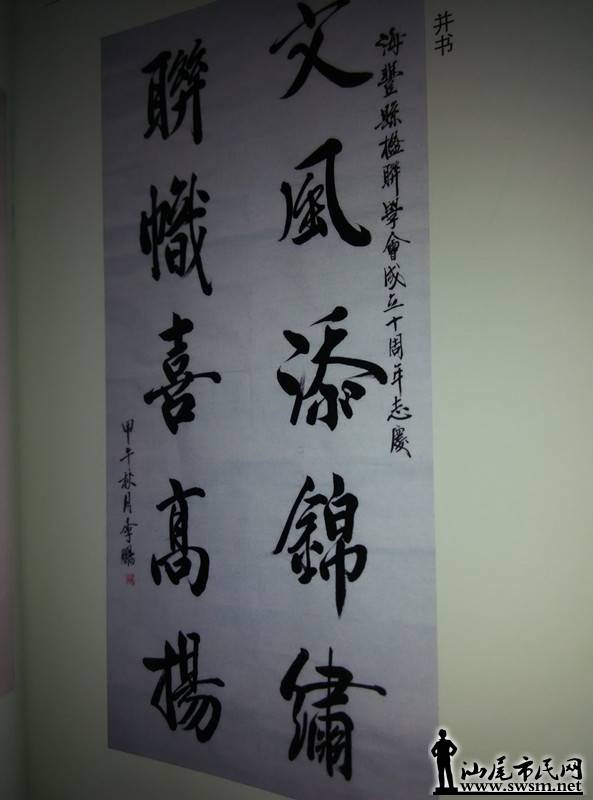 并书
海豐縣楹聯學會成立十周年志慶
文風添錦繡
聯幟喜高揚
甲午秋月李鵬
汕尾市民网
www.swsm.net